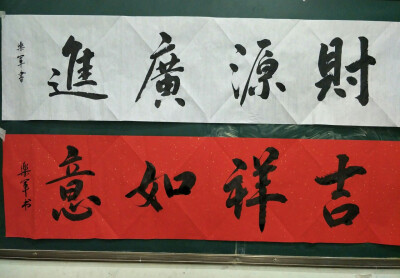 財源廣進
樂軍書
吉祥如意
樂軍书